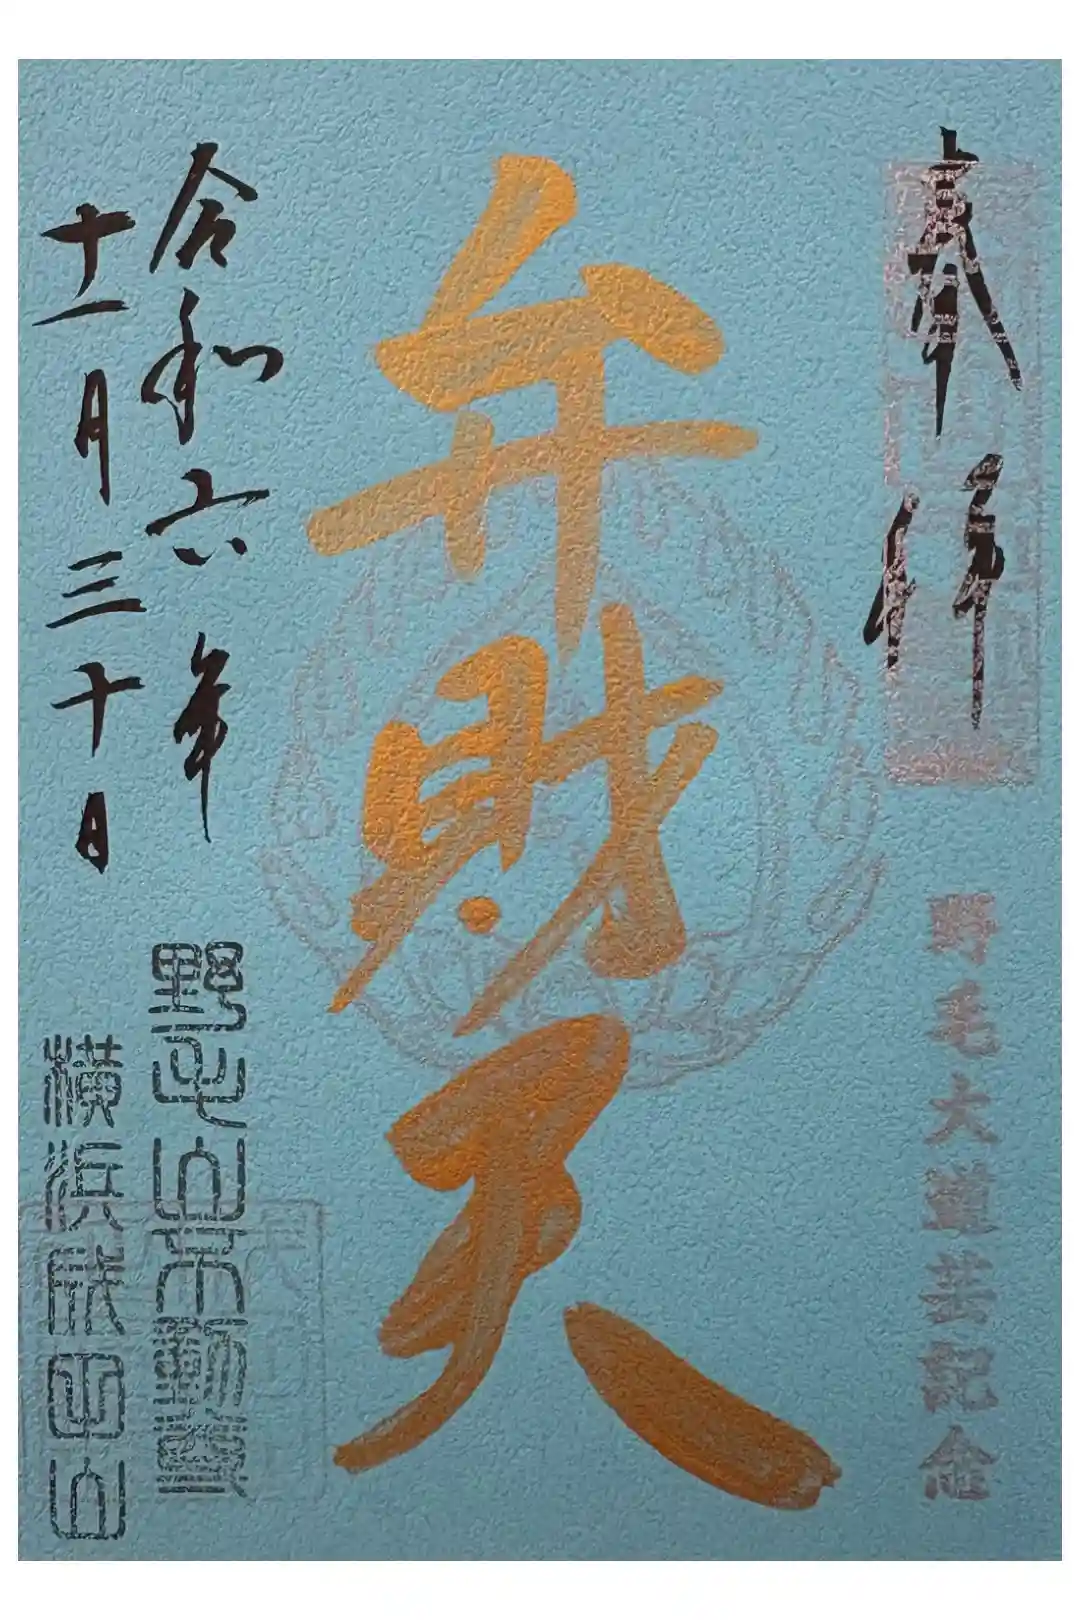 奉拝
野毛大道芸記念
弁財天
令和六年
十一月三十日
野毛山不動尊
横浜成田山